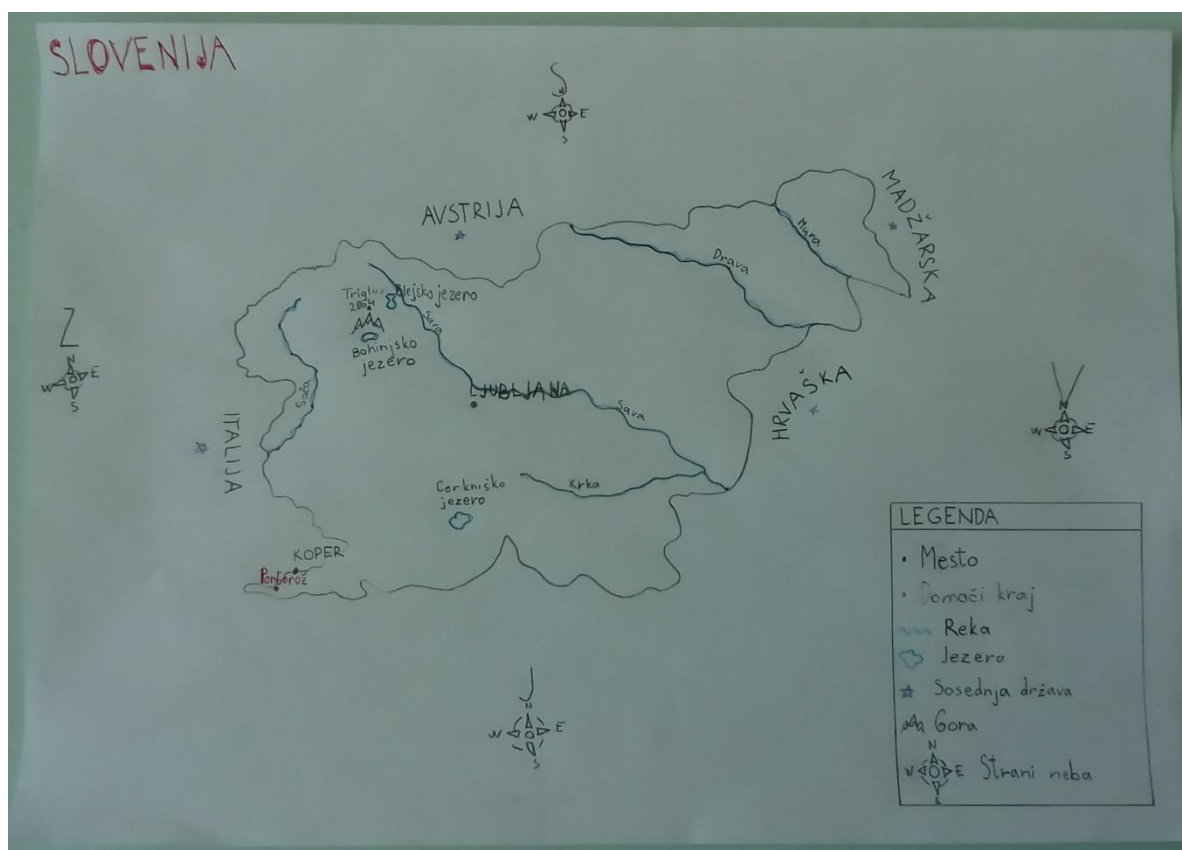 SLOVENIJA
S
N
W E
S
AVSTRIJA
MADŽARSKA
Mura
Drava
Triglav
2864
Blejsko jezero
Sava
Bohinjsko
jezero
Z
N
W E
S
LJUBLJANA
Soča
Sava
HRVAŠKA
ITALIJA
V
N
W E
S
Cerkniško
jezero
Krka
KOPER
Portorož
J
N
W E
S
LEGENDA
Mesto
Domači kraj
Reka
Jezero
Sosednja država
Gora
N
W E
S
Strani neba